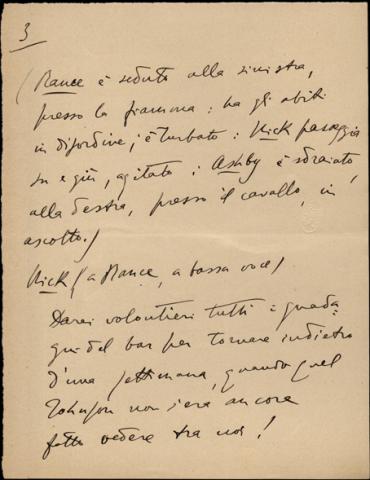 3
(Rance è seduto alla sinistra,
presso la fiamma: ha gli abiti
in disordine, è turbato: Nick passeggia
su e giù, agitato: Ashby è sdraiato
alla destra, presso il cavallo, in
ascolto.)
Nick (a Rance, a bassa voce)
Darei volontieri tutti i guada-
gni del bar per tornare indietro
d'una settimana, quando quel
Johnson non s'era ancora
fatto vedere tra noi!